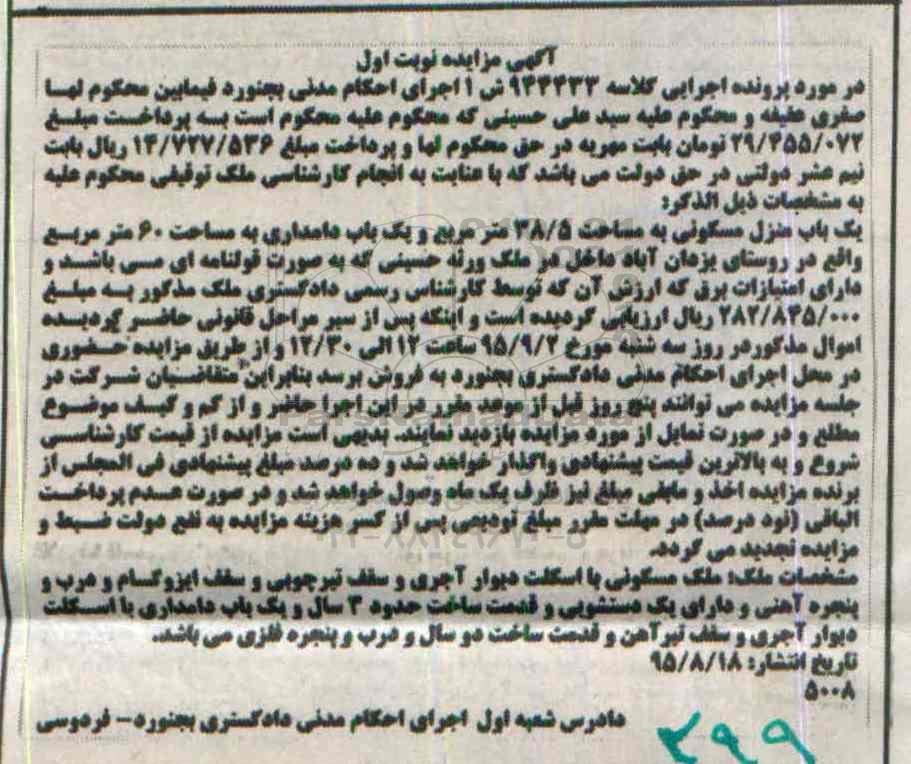 آگهی مزایده نوبت اول
در مورد پرونده اجرایی کلاسه ۹۴۳۴۳۳ ش ۱ اجرای احکام مدنی بجنورد فیمابین محکوم لها
صغری عفیفه و محکوم علیه سید علی حسینی که محکوم علیه محکوم است به پرداخت مبلغ
۲۹/۴۵۵/۰۷۲ تومان بابت مهریه در حق محکوم لها و پرداخت مبلغ ۱۴/۷۲۷/۵۳۶ ریال بابت
نیم عشر دولتی در حق دولت می باشد که با عنایت به انجام کارشناسی ملک توقیفی محکوم علیه
به مشخصات ذیل الذکر:
یک باب منزل مسکونی به مساحت ۳۸/۵ متر مربع و یک باب دامداری به مساحت ۶۰ متر مربع
واقع در روستای یزدان آباد داخل در ملک ورثه حسینی که به صورت قولنامه ای می باشد و
دارای امتیازات برق که ارزش آن که توسط کارشناس رسمی دادگستری ملک مذکور به مبلغ
۲۸۲/۸۴۵/۰۰۰ ریال ارزیابی گردیده است و اینکه پس از سیر مراحل قانونی حاضر گردیده
اموال مذکور در روز سه شنبه مورخ ۹۵/۹/۲ ساعت ۱۲ الی ۱۲/۳۰ و از طریق مزایده حضوری
در محل اجرای احکام مدنی دادگستری بجنورد به فروش برسد بنابراین متقاضیان شرکت در
جلسه مزایده می توانند پنج روز قبل از موعد مقرر در این اجرا حاضر و از کم و کیف موضوع
مطلع و در صورت تمایل از مورد مزایده بازدید نمایند. بدیهی است مزایده از قیمت کارشناسی
شروع و به بالاترین قیمت پیشنهادی واگذار خواهد شد و ده درصد مبلغ پیشنهادی فی المجلس از
برنده مزایده اخذ و مابقی مبلغ نیز ظرف یک ماه وصول خواهد شد و در صورت عدم پرداخت
الباقی (نود درصد) در مهلت مقرر مبلغ تودیعی پس از کسر هزینه مزایده به نفع دولت ضبط و
مزایده تجدید می گردد.
مشخصات ملک: ملک مسکونی با اسکلت دیوار آجری و سقف تیرچوبی و سقف ایزوگام و درب و
پنجره آهنی و دارای یک دستشویی و قدمت ساخت حدود ۳ سال و یک باب دامداری با اسکلت
دیوار آجری و سقف تیرآهن و قدمت ساخت دو سال و درب و پنجره فلزی می باشد.
تاریخ انتشار: ۹۵/۸/۱۸
۵۰۰۸
دادرس شعبه اول اجرای احکام مدنی دادگستری بجنورد- فردوسی
۴۹۹